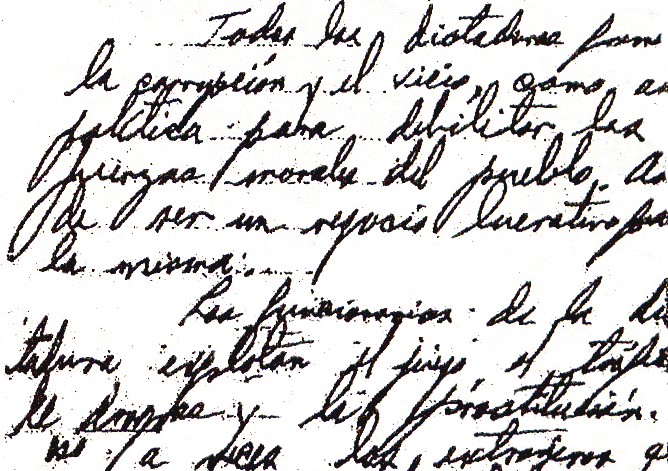 Todas las dictaduras fome
la corrupción y el vicio, como
política para debilitar las
fuerzas morales del pueblo. A
de ser un negocio lucrativo pa
la misma.
Los funcionarios de la di
tadura explotan el juego el tráfi
de drogas y la prostitución.
a veces los extranjeros